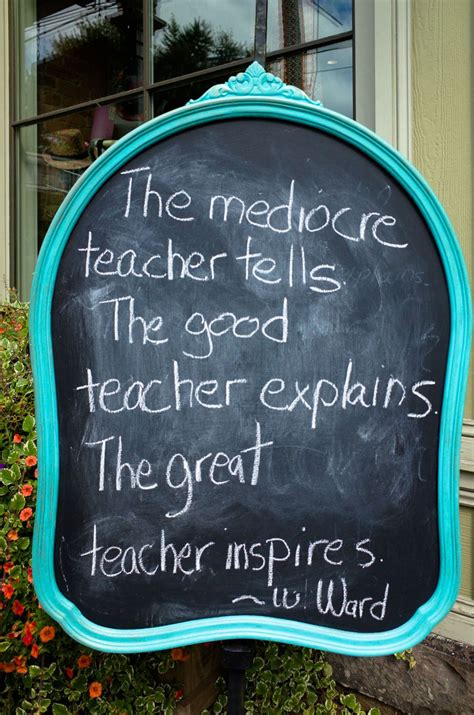 The mediocre
teacher tells.
The good
teacher explains.
The great
teacher inspires.
~ W Ward